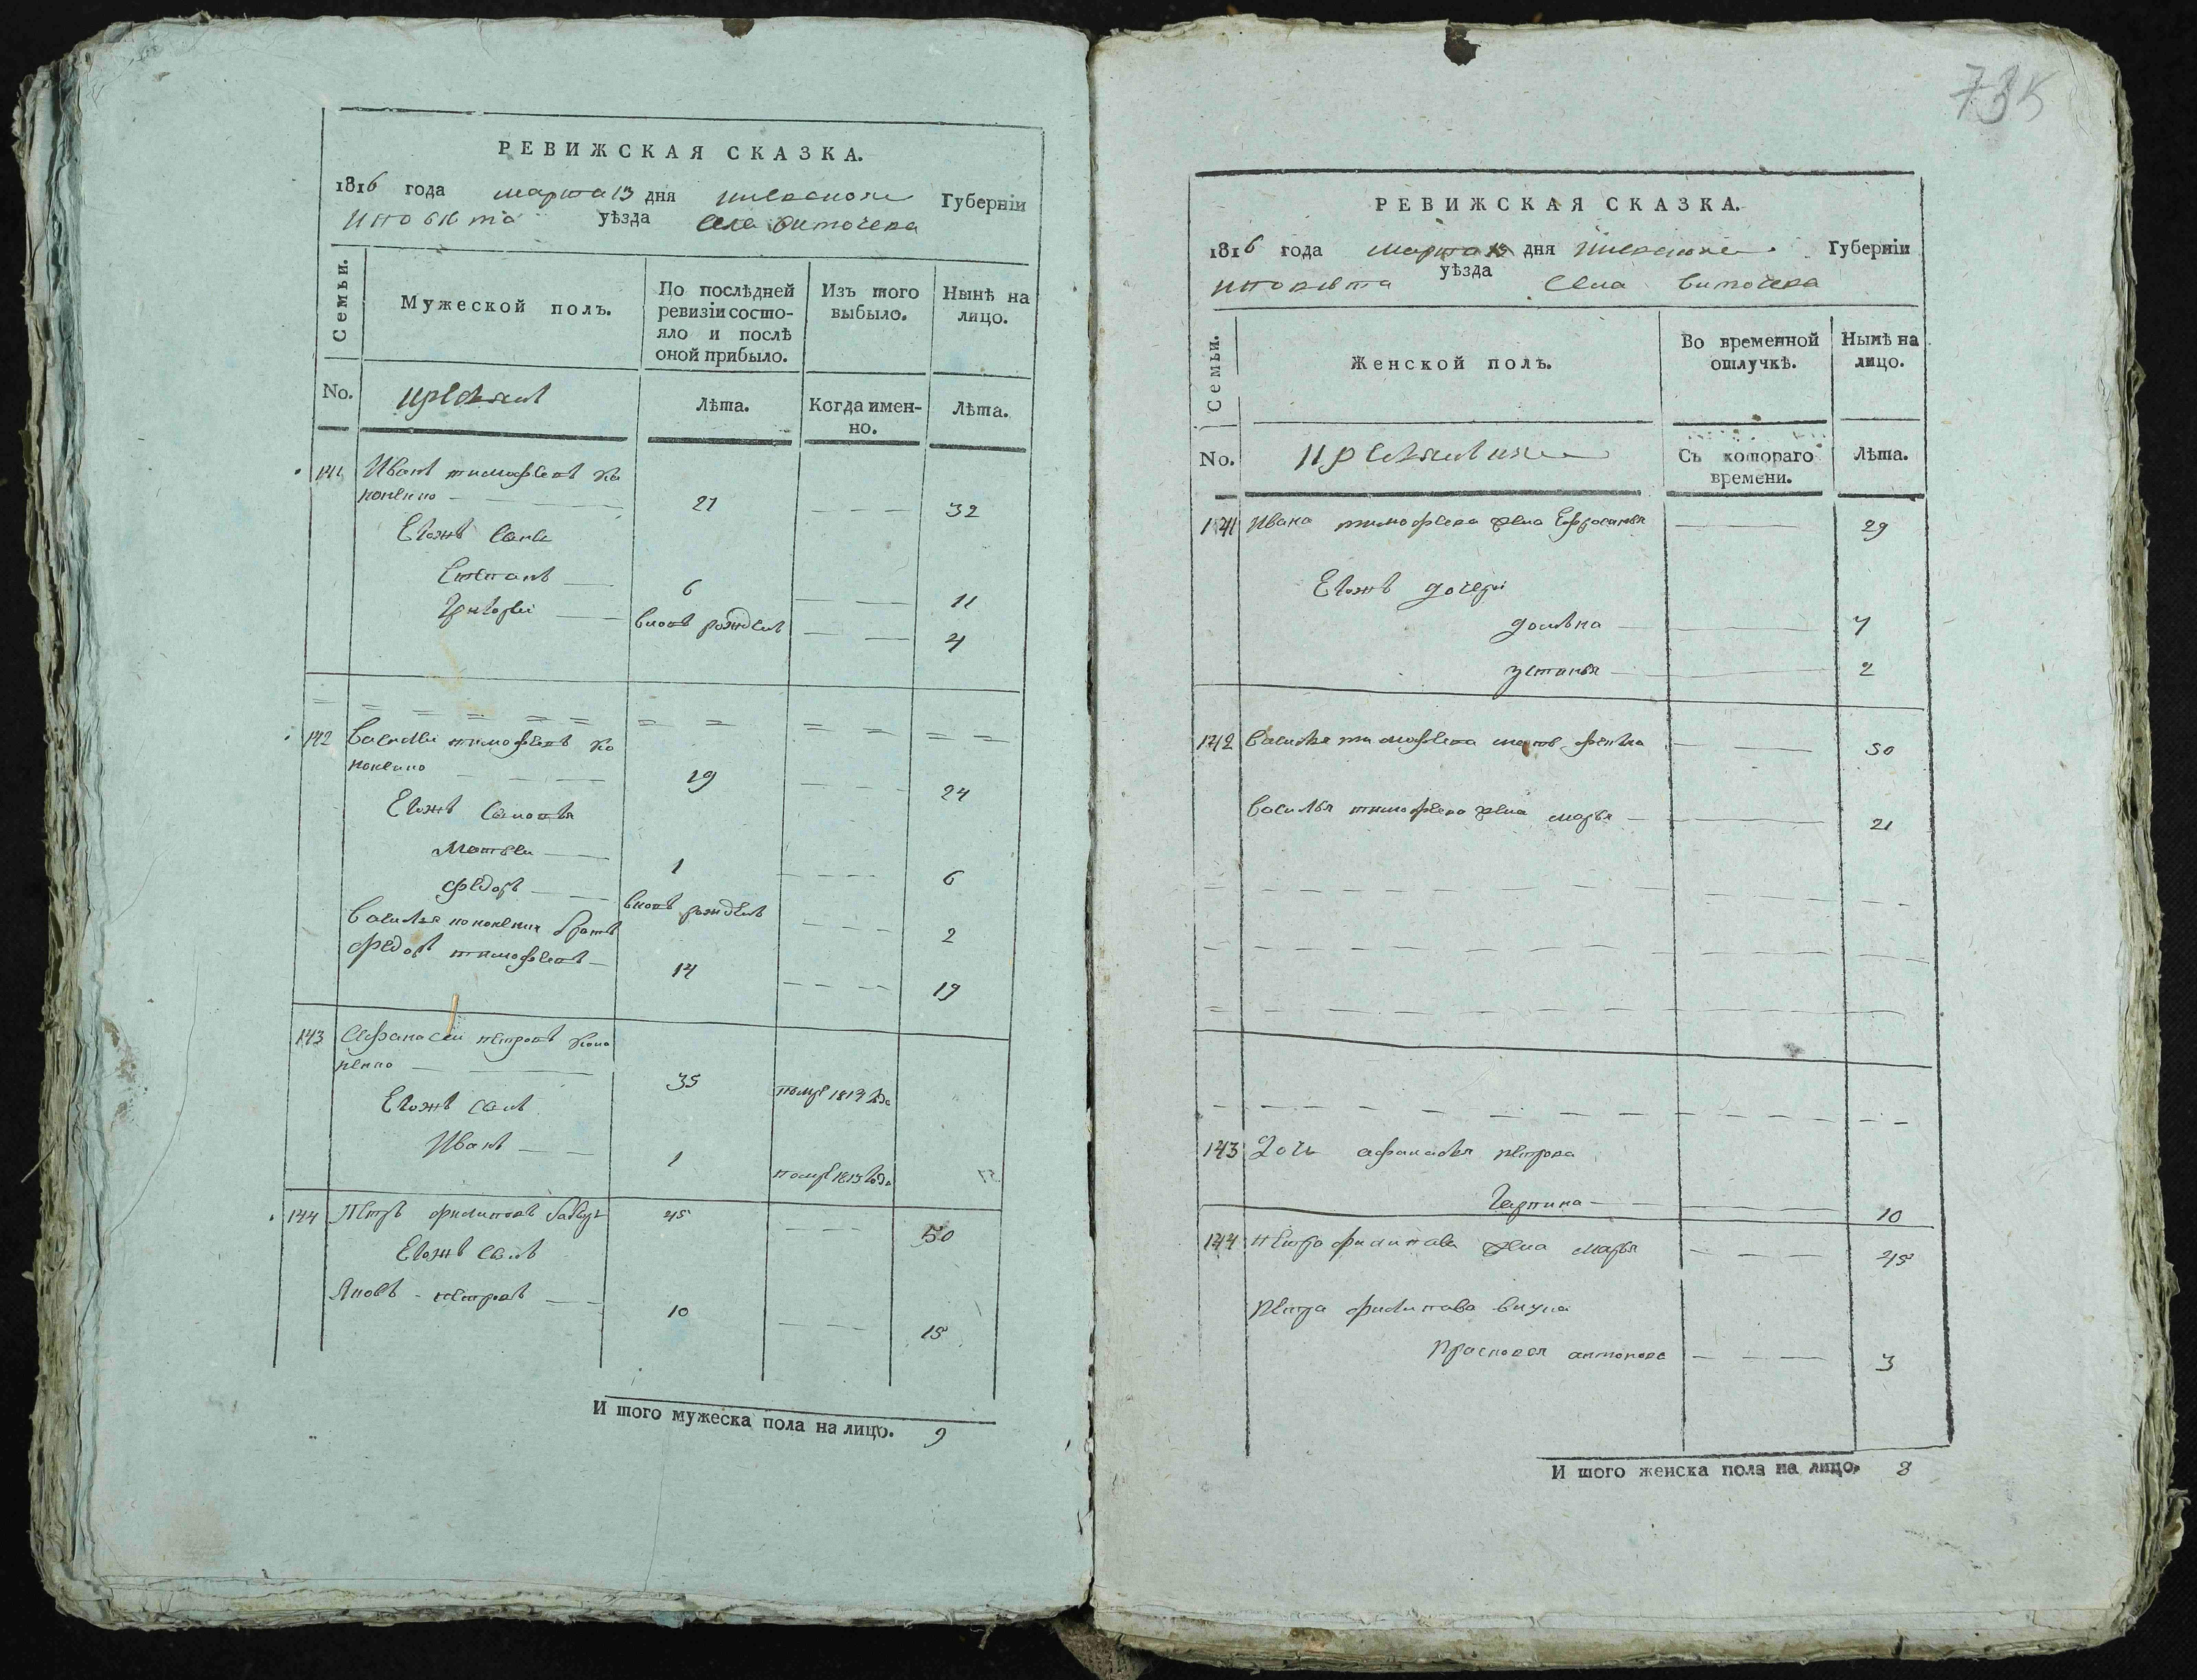 73К
РЕВИЖСКАЯ СКАЗКА.
1816 года марта 13 дня Киевской Губернїи
уѣзда села Витачева
Семьи.
Мужеской полъ.
По послѣдней ревизїи состо-
яло и послѣ
оной прибыло.
Изъ того
выбыло.
Нынѣ на
лицо.
No.
Лѣта.
Когда имен-
но.
Лѣта.
141 Иванъ тимофеевъ Ко
ноненко 27 32
Егожъ сыны
Степанъ 6 11
Григорей вновь рожденъ 4
142 Василей тимофеевъ Ко
ноненко 19 24
Егожъ сыновья
Матвеи 1 6
Федоръ вновь рожденъ 2
Василья кононенка братъ
Федоръ тимофеевъ 14 19
143 Афанасеи петровъ Коно
ненко 35
Егожъ сынъ
Иванъ 1 помре 1813 года
144 Петръ филиповъ 45 50
Егожъ сынъ
Яковъ петровъ 10 15
И того мужеска пола на лицо. 9
РЕВИЖСКАЯ СКАЗКА.
1816 года марта 13 дня Киевской Губернїи
уѣзда
села витачева
Семьи.
Женской полъ.
Во временной
отлучкѣ.
Нынѣ на
лицо.
No.
Съ котораго
времени.
Лѣта.
141 Ивана тимофеева жена Ефросинья 29
Егожъ дочери
7
устинья 2
142 Василья тимофеева мать 50
Василья тимофеева жена марья 21
143 Дочь афанасья петрова
10
144 петра филипава жена марья 45
петра филипава внука
Прасковея антонова 3
И того женска пола на лицо. 8